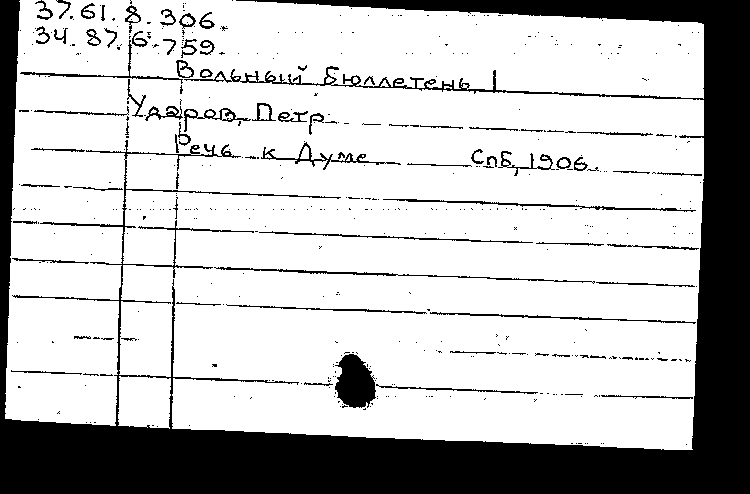 37.61.8.306.
34.87.6.759.
Вольный Бюллетень, 1
Ударов, Петр
Речь к Думе СПБ, 1906.